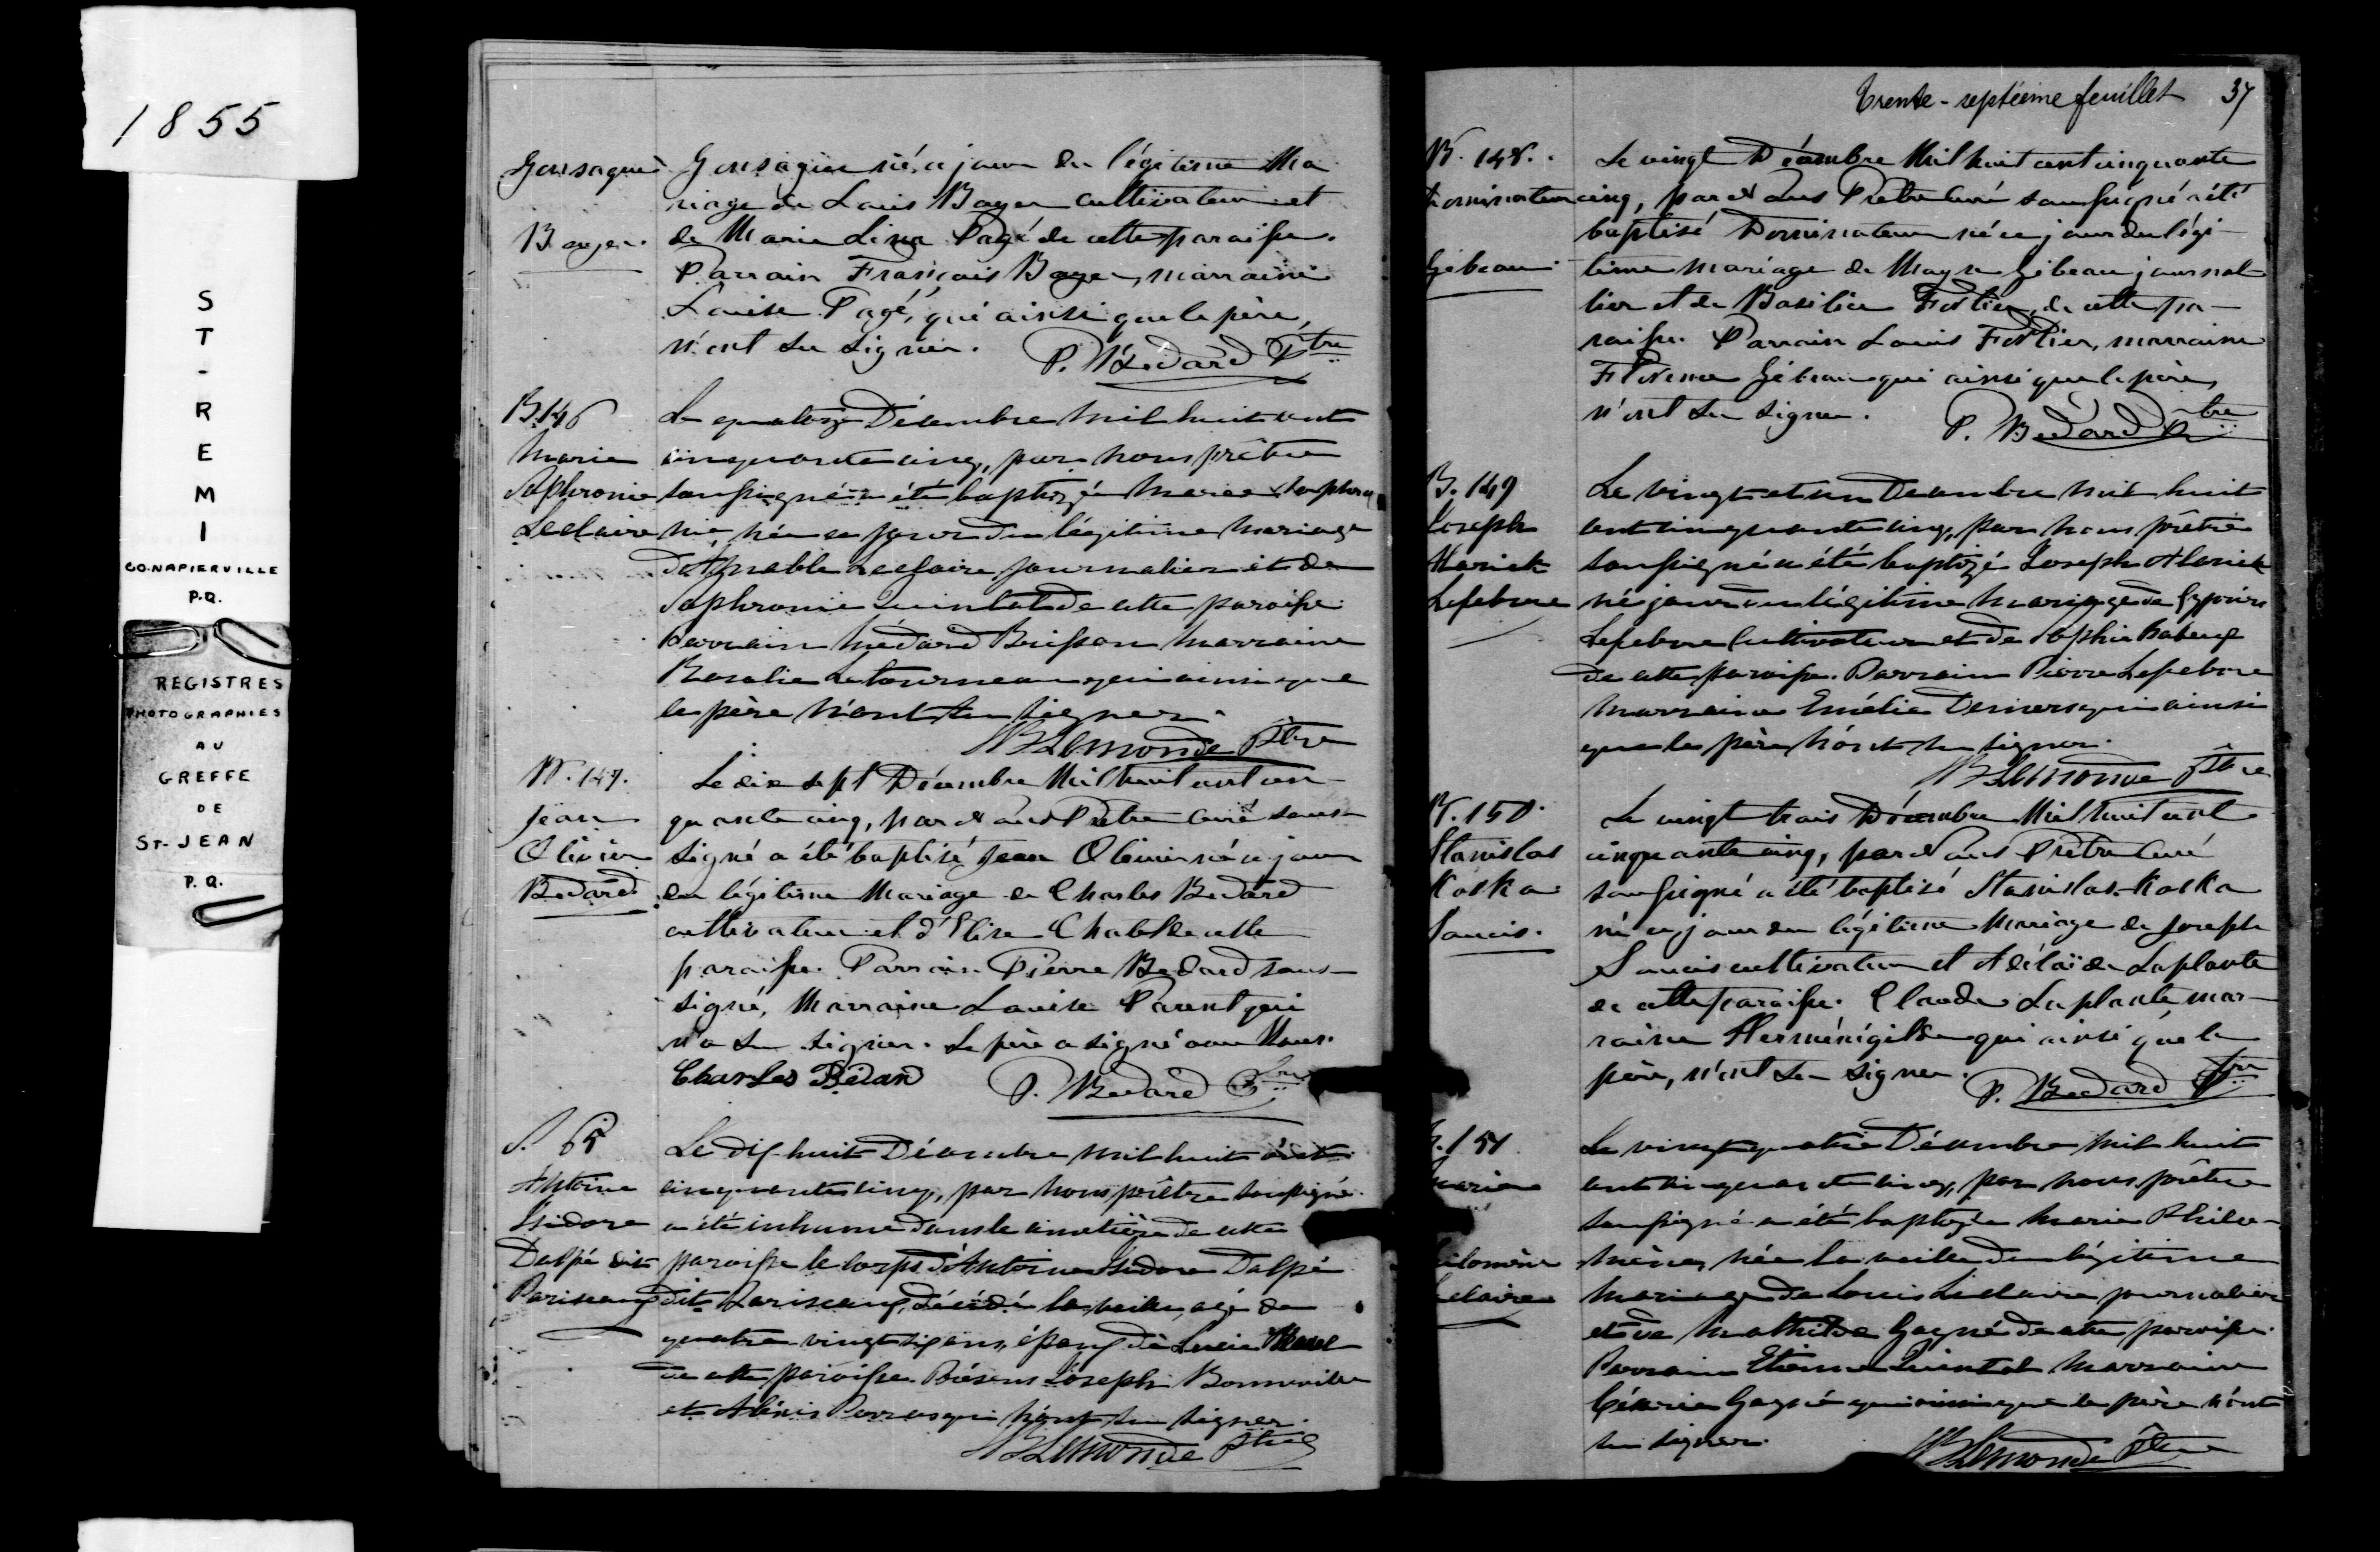 1855
ST-REMI
CO. NAPIERVILLE
P.Q.
REGISTRES
PHOTOGRAPHIES
AU
GREFFE
DE
ST-JEAN
P.Q.
Gonsague
Boyer.
Gonsague né ce jour du légitime Ma
riage de Louis Boyer cultivateur et
de Marie Lina Pagé de cette paroisse.
Parrain François Boyer, marraine
Louise Pagé, qui ainsi que le père,
n'ont su signer.
P. Bédard Ptre
B. 146
Marie
Sophronie
Leclaire
Le quatorze Décembre mil huit cent
cinquante cinq, par nous prêtre
soussigné a été baptizée Marie Sophro
nie, née ce jour du légitime mariage
d'Aimable Leclaire journalier et de
Sophronie Quintal de cette paroisse
Parrain Médard Buisson Marraine
Rosalie Letourneau qui ainsi que
le père n'ont su signer.
Lemonde Ptre
B. 147.
Jean
Olivier
Bedard
Le dix sept Décembre Mil huit cent cin-
quante cinq, par Nous Prêtre Curé sous-
signé a été baptisé Jean Olivier né ce jour
du légitime Mariage de Charles Bedard
cultivateur et d'Elise Chabot de cette
paroisse. Parrain Pierre Bedard sous-
signé, Marraine Louise Parent qui
n'a su signer. Le père a signé avec Nous.
Charles Bédard
P. Bedard Ptre
S. 65
Antoine
Isidore
Dalpé dit
Pariseau
Le dix huit Décembre mil huit cent
cinquante cinq, par nous prêtre soussigné
a été inhumé dans le cimetière de cette
paroisse le corps d'Antoine Isidore Dalpé
dit Pariseau, décédé la veille, agé de
quatre vingt six ans, époux de Lucie
de cette paroisse. Présens Joseph Bonneville
et Alexis Perras qui n'ont su signer.
Lemonde Ptre
Trente-septième feuillet 37
B. 148.
Dominateur
Gibeau
Le vingt Décembre Mil huit cent cinquante
cinq, par Nous Prêtre Curé soussigné a été
baptisé Dominateur né ce jour du légi-
time mariage de Mayse Gibeau journal
lier et de Basilice Fortier, de cette pa-
roisse. Parrain Louis Fortier, marraine
Florence Gibeau qui ainsi que le père,
n'ont su signer.
P. Bedard Ptre
B. 149
Joseph
Alarick
Lefebvre
Le vingt et un Décembre mil huit
cent cinquante cinq, par nous prêtre
soussigné a été baptizé Joseph Alarick
né jour du légitime mariage de
Lefebvre Cultivateur et de Sophie Babeux
de cette paroisse. Parrain Pierre Lefebvre
Marraine Emélie Demers qui ainsi
que le père n'ont su signer.
Lemonde Ptre
B. 150.
Stanislas
Koska
Sancis.
Le vingt trois Décembre Mil huit cent
cinquante cinq, par Nous Prêtre Curé
soussigné a été baptisé Stanislas-Koska
né ce jour du légitime Mariage de Joseph
Sancis cultivateur et Adélaïde Laplante
de cette paroisse. Claude Laplante, mar-
raine Herménégilde qui ainsi que le
père, n'ont su signer.
P. Bedard Ptre
B. 151
Marie
Philomène
Leclaire
Le vingt quatre Décembre mil huit
cent cinquante cinq, par nous prêtre
soussigné a été baptizée Marie Philo-
mène, née la veille du légitime
mariage de Louis Leclaire journalier
et de Mathilde Gagné de cette paroisse.
Parrain Etienne Quintal Marraine
Césarie Gagné qui ainsi que le père n'ont
su signer.
Lemonde Ptre